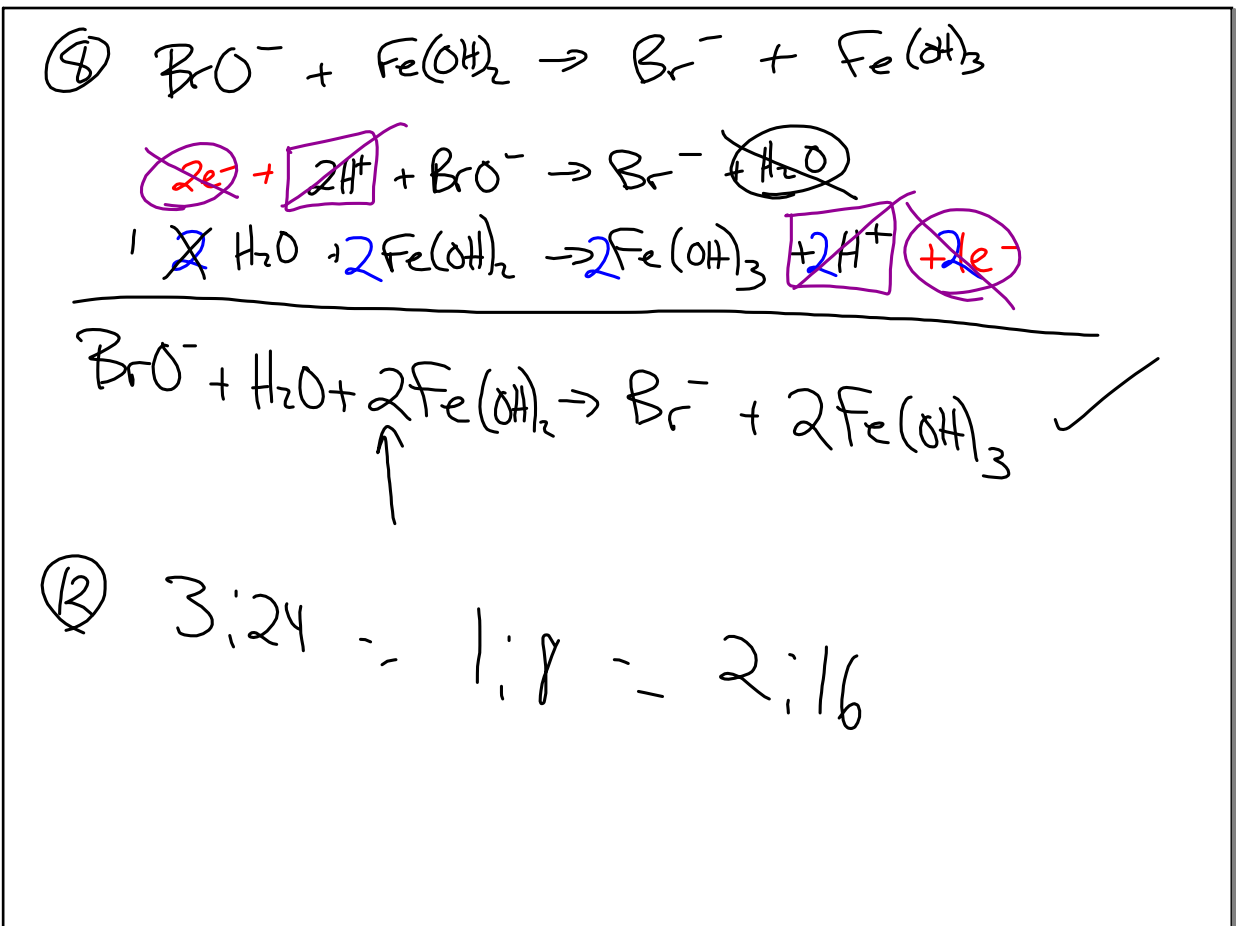 ⑧ BrO⁻ + Fe(OH)₂ → Br⁻ + Fe(OH)₃
2e⁻ + 2H⁺ + BrO⁻ → Br⁻ + H₂O
1 2 H₂O + 2Fe(OH)₂ → 2Fe(OH)₃ + 2H⁺ + 2e⁻
BrO⁻ + H₂O + 2Fe(OH)₂ → Br⁻ + 2Fe(OH)₃ ✓
⑫ 3:24 = 1:8 = 2:16